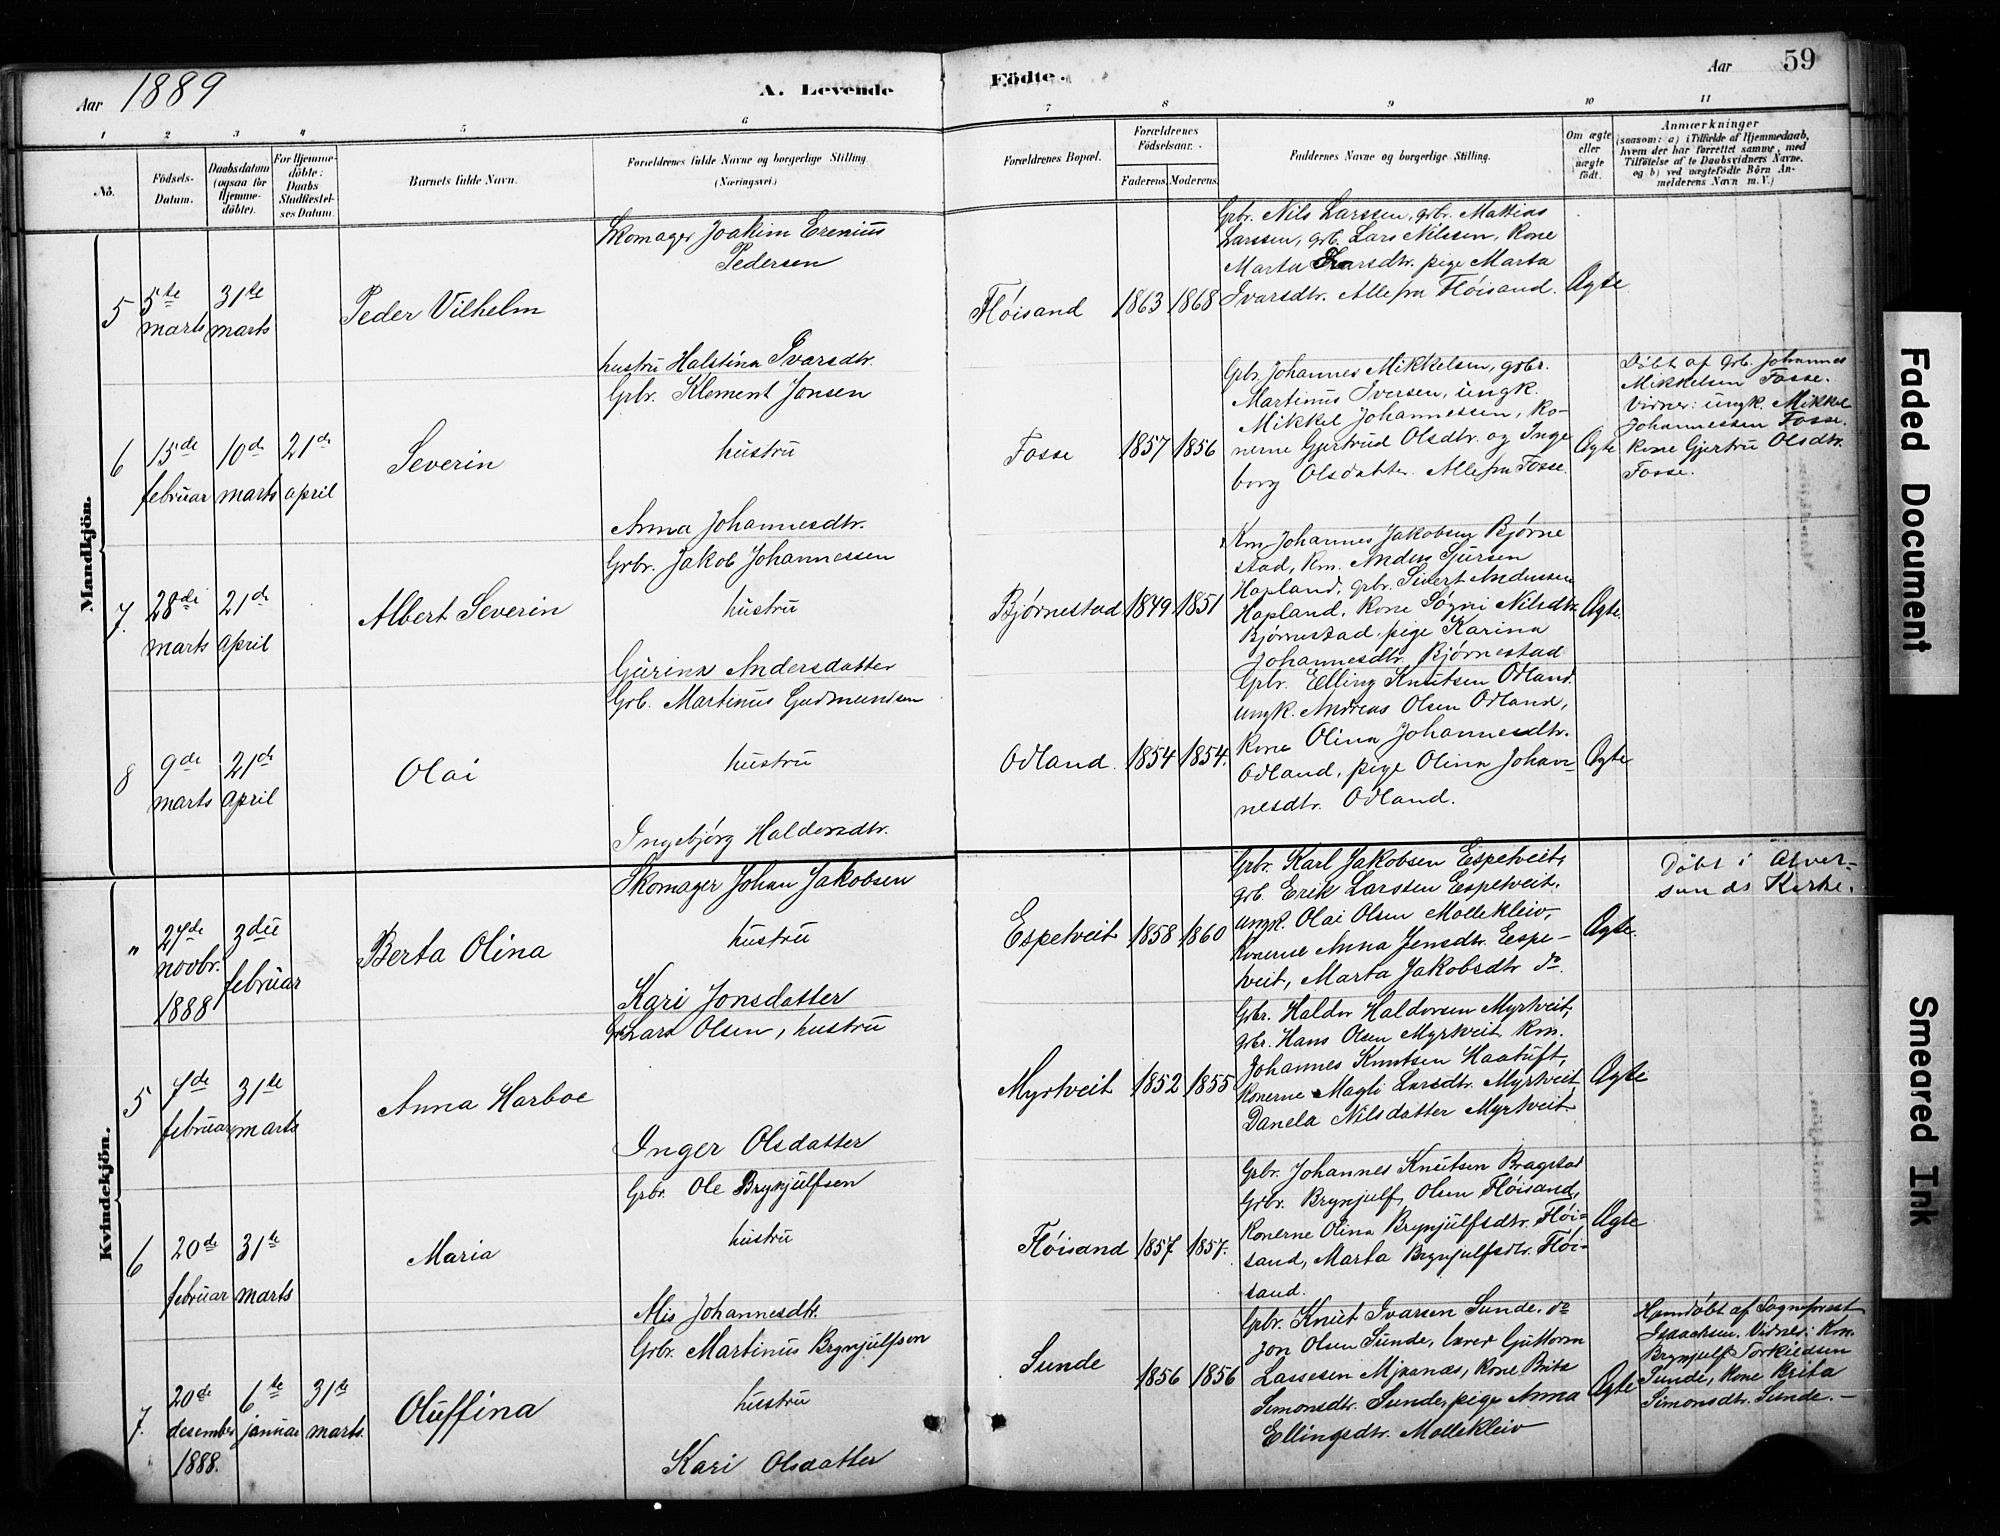 Aar 1889
A. Levende
Födte.
Aar 59
1 2 3 4 5 6 7 8 9 10 11
No.
Födsels-
Datum.
Daabsdatum
(ogsaa for
Hjemme-
döbte).
For Hjemme-
döbte:
Daabs
Stadfæstel-
ses Datum.
Barnets fulde Navn.
Forældrenes fulde Navne og borgerlige Stilling
(Næringsvei.)
Forældrenes Bopæl.
Forældrenes
Födselsaar.
Faderens. Moderens.
Faddernes Navne og borgerlige Stilling.
Om ægte
eller
uægte
födt.
Anmærkninger
(saasom: a) i Tilfælde af Hjemmedaab,
hvem der har forrettet samme, med
Tilföielse af to Daabsvidners Navne,
og b) ved uægtefödte Börn An-
melderens Navn m. V.)
Mandkjön.
5
5te
marts
31te
marts
Peder Vilhelm
Skomager Joakim Erenius
Pedersen
hustru Halstina Ivarsdtr.
Fløisand
1863 1868
Gbr. Nils Larssen, grbr. Mattias
Larssen, grb. Lars Nilssen, Kone
Marta Larsdtr. pige Marta
Ivarsdtr. Alle fra Fløisand.
Ægte
6
15de
februar
10de
marts
21de
april
Severin
Gbr. Klement Jonsen
hustru
Anna Johannesdtr.
Fosse
1857 1856
Grbr. Johannes Mikkelsen, grbr.
Martinus Iversen, ungk.
Mikkel Johannessen, Ko-
nerne Gjertrud Olsdtr. og Inge
borg Olsdatter. Alle fra Fosse.
Ægte
Døbt af Grb. Johannes
Mikkelsen Fosse.
Vidner: ungk. Mikkel
Johannessen Fosse.
Kone Gjertru Olsdtr.
Fosse.
7.
28de
marts
21de
april
Albert Severin
Grbr. Jakob Johannessen
hustru
Gurina Andersdatter
Bjørnestad
1849 1851
Km. Johannes Jakobsen Bjørne
stad, Km. Anders Sjursen
Hopland, grbr. Sivert Anderssen
Hopland, Kone Søgni Nilsdtr.
Bjørnestad, pige Karina
Johannesdtr. Bjørnestad
Ægte.
8
9de
marts
21de
april
Olai
Grb. Martinus Gudmundsen
hustru
Ingebjørg Haldorsdtr.
Odland.
1854 1854.
Gbr. Elling Knutsen Odland.
ungk. Andreas Olsen Odland,
Kone Olina Johannesdtr.
Odland, pige Olina Johan-
nesdtr. Odland.
Ægte
Kvindekjön.
"
27de
novbr.
1888
3die
februar
Berta Olina
Skomager Johan Jakobsen
hustru
Kari Jonsdatter
Espetveit
1858 1860
Gbr. Karl Jakobsen Espetveit,
grb. Erik Larssen Espetveit.
ungk. Olai Olsen Mollekleiv,
Konerne Anna Jensdtr. Espe-
tveit, Marta Jakobsdtr do.
Ægte.
Døbt i Alver-
sunds Kirke.
5
7de
februar
31te
marts
Anna Harboe
Gbr. Lars Olsen, hustru
Inger Olsdatter
Myrtveit
1852 1855
Gbr. Haldor Haldorsen Myrtveit,
grbr. Hans Olsen Myrtveit Km.
Johannes Knutsen Haatuft,
Konerne Magli Larsdtr. Myrtveit
Danela Nilsdatter Myrtveit
Ægte
6
20de
februar
31te
marts
Maria
Grbr. Ole Brynjulfsen
hustru
Alis Johannesdtr.
Fløisand
1857 1857.
Grbr. Johannes Knutsen Bragstad
Grbr. Brynjulf Olsen Fløisand,
Konerne Olina Brynjulfsdtr. Fløi-
sand, Marta Brynjulfsdtr. Fløi-
sand.
Ægte
7.
20de
desember
1888.
6te
januar
31te
marts.
Oluffina
Grbr. Martinus Brynjulfson
hustru
Kari Olsdatter
Sunde
1856 1856
Gbr. Knut Ivarsen Sunde, do
Jon Olsen Sunde, lærer Guttorm
Lassesen Mjanæs, Kone Brita
Simonsdtr. Sunde, pige Anna
Ellingsdtr. Mollekleiv
Ægte
Hjemdøbt af Sogneprest
Isaachsen, Vidner: Km.
Brynjulf Torkildsen
Sunde, Kone Brita
Simonsdtr. Sunde. -
Faded Document
Smeared Ink